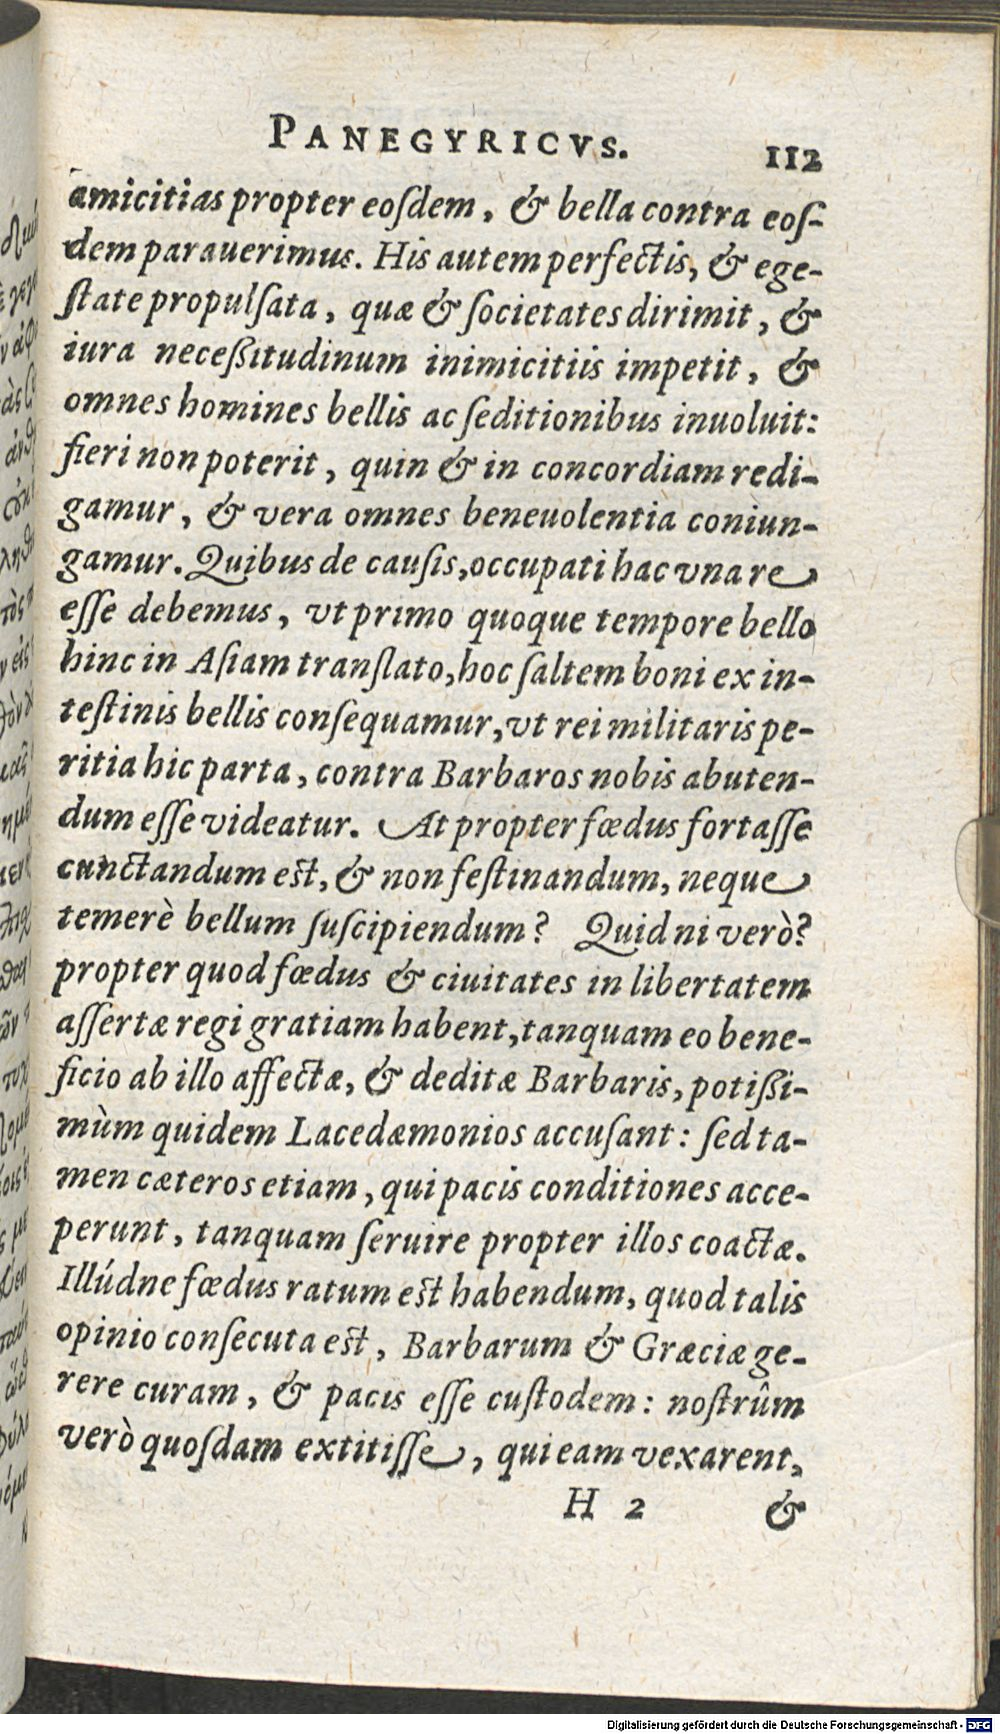 PANEGYRICVS. 112
amicitias propter eoſdem, & bella contra eoſ-
dem parauerimus. His autem perfectis, & ege-
ſtate propulſata, quæ & ſocietates dirimit, &
iura neceßitudinum inimicitiis impetit, &
omnes homines bellis ac ſeditionibus inuoluit:
fieri non poterit, quin & in concordiam redi-
gamur, & vera omnes beneuolentia coniun-
gamur. Quibus de cauſis, occupati hac vna re
eſſe debemus, vt primo quoque tempore bello
hinc in Aſiam tranſlato, hoc ſaltem boni ex in-
teſtinis bellis conſequamur, vt rei militaris pe-
ritia hic parta, contra Barbaros nobis abuten-
dum eſſe videatur. At propter fœdus fortaſſe
cunctandum eſt, & non feſtinandum, neque
temerè bellum ſuſcipiendum? Quid ni verò?
propter quod fœdus & ciuitates in libertatem
aſſertæ regi gratiam habent, tanquam eo bene-
ficio ab illo affectæ, & deditæ Barbaris, potißi-
mùm quidem Lacedæmonios accuſant: ſed ta-
men cæteros etiam, qui pacis conditiones acce-
perunt, tanquam ſeruire propter illos coactæ.
Illúdne fœdus ratum eſt habendum, quod talis
opinio conſecuta eſt, Barbarum & Græciæ ge-
rere curam, & pacis eſſe cuſtodem: noſtrûm
verò quoſdam extitiſſe, qui eam vexarent,
H 2 &
Digitalisierung gefördert durch die Deutsche Forschungsgemeinschaft - DFG